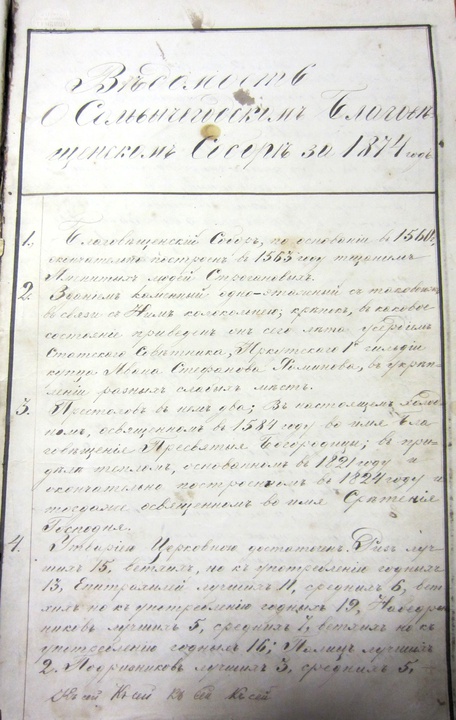 Вѣдомость
О Сольвычегодскомъ Благовѣ-
щенскомъ Соборѣ за 1874 годъ
1. Благовѣщенскій Соборъ, по основаніи въ 1560,
окончательно построенъ въ 1565 году тщаніемъ
Именитыхъ людей Строгановыхъ.
2. Зданіемъ каменный одно-этажный съ таковою же
въ связи съ нимъ колокольнею, крѣпокъ, въ каковое
состояніе приведенъ онъ сего лѣта усердіемъ
Статского Совѣтника, Иркутского 1й гильдіи
купца Ивана Стефанова Хаминова, въ укрѣп-
леніи разныхъ слабыхъ мѣстъ.
3. Престоловъ въ немъ два; Въ настоящемъ холод-
номъ, освященномъ въ 1584 году во имя Бла-
говѣщенія Пресвятыя Богородицы; въ при-
дѣлѣ тепломъ, основанномъ въ 1821 году и
окончательно построенномъ въ 1824 году и
тогда же освященномъ во имя Срѣтенія
Господня.
4. Утварію Церковною достаточенъ. Ризъ луч-
шихъ 15, ветхихъ, но къ употребленію годныхъ
13, Епитрахилей лучшихъ 11, среднихъ 6, вет-
хихъ но къ употребленію годныхъ 19, Набедрен-
никовъ лучшихъ 5, среднихъ 7, ветхихъ но къ
употребленію годныхъ 16; Палицъ лучшихъ
2. Подризниковъ лучшихъ 3, среднихъ 5,